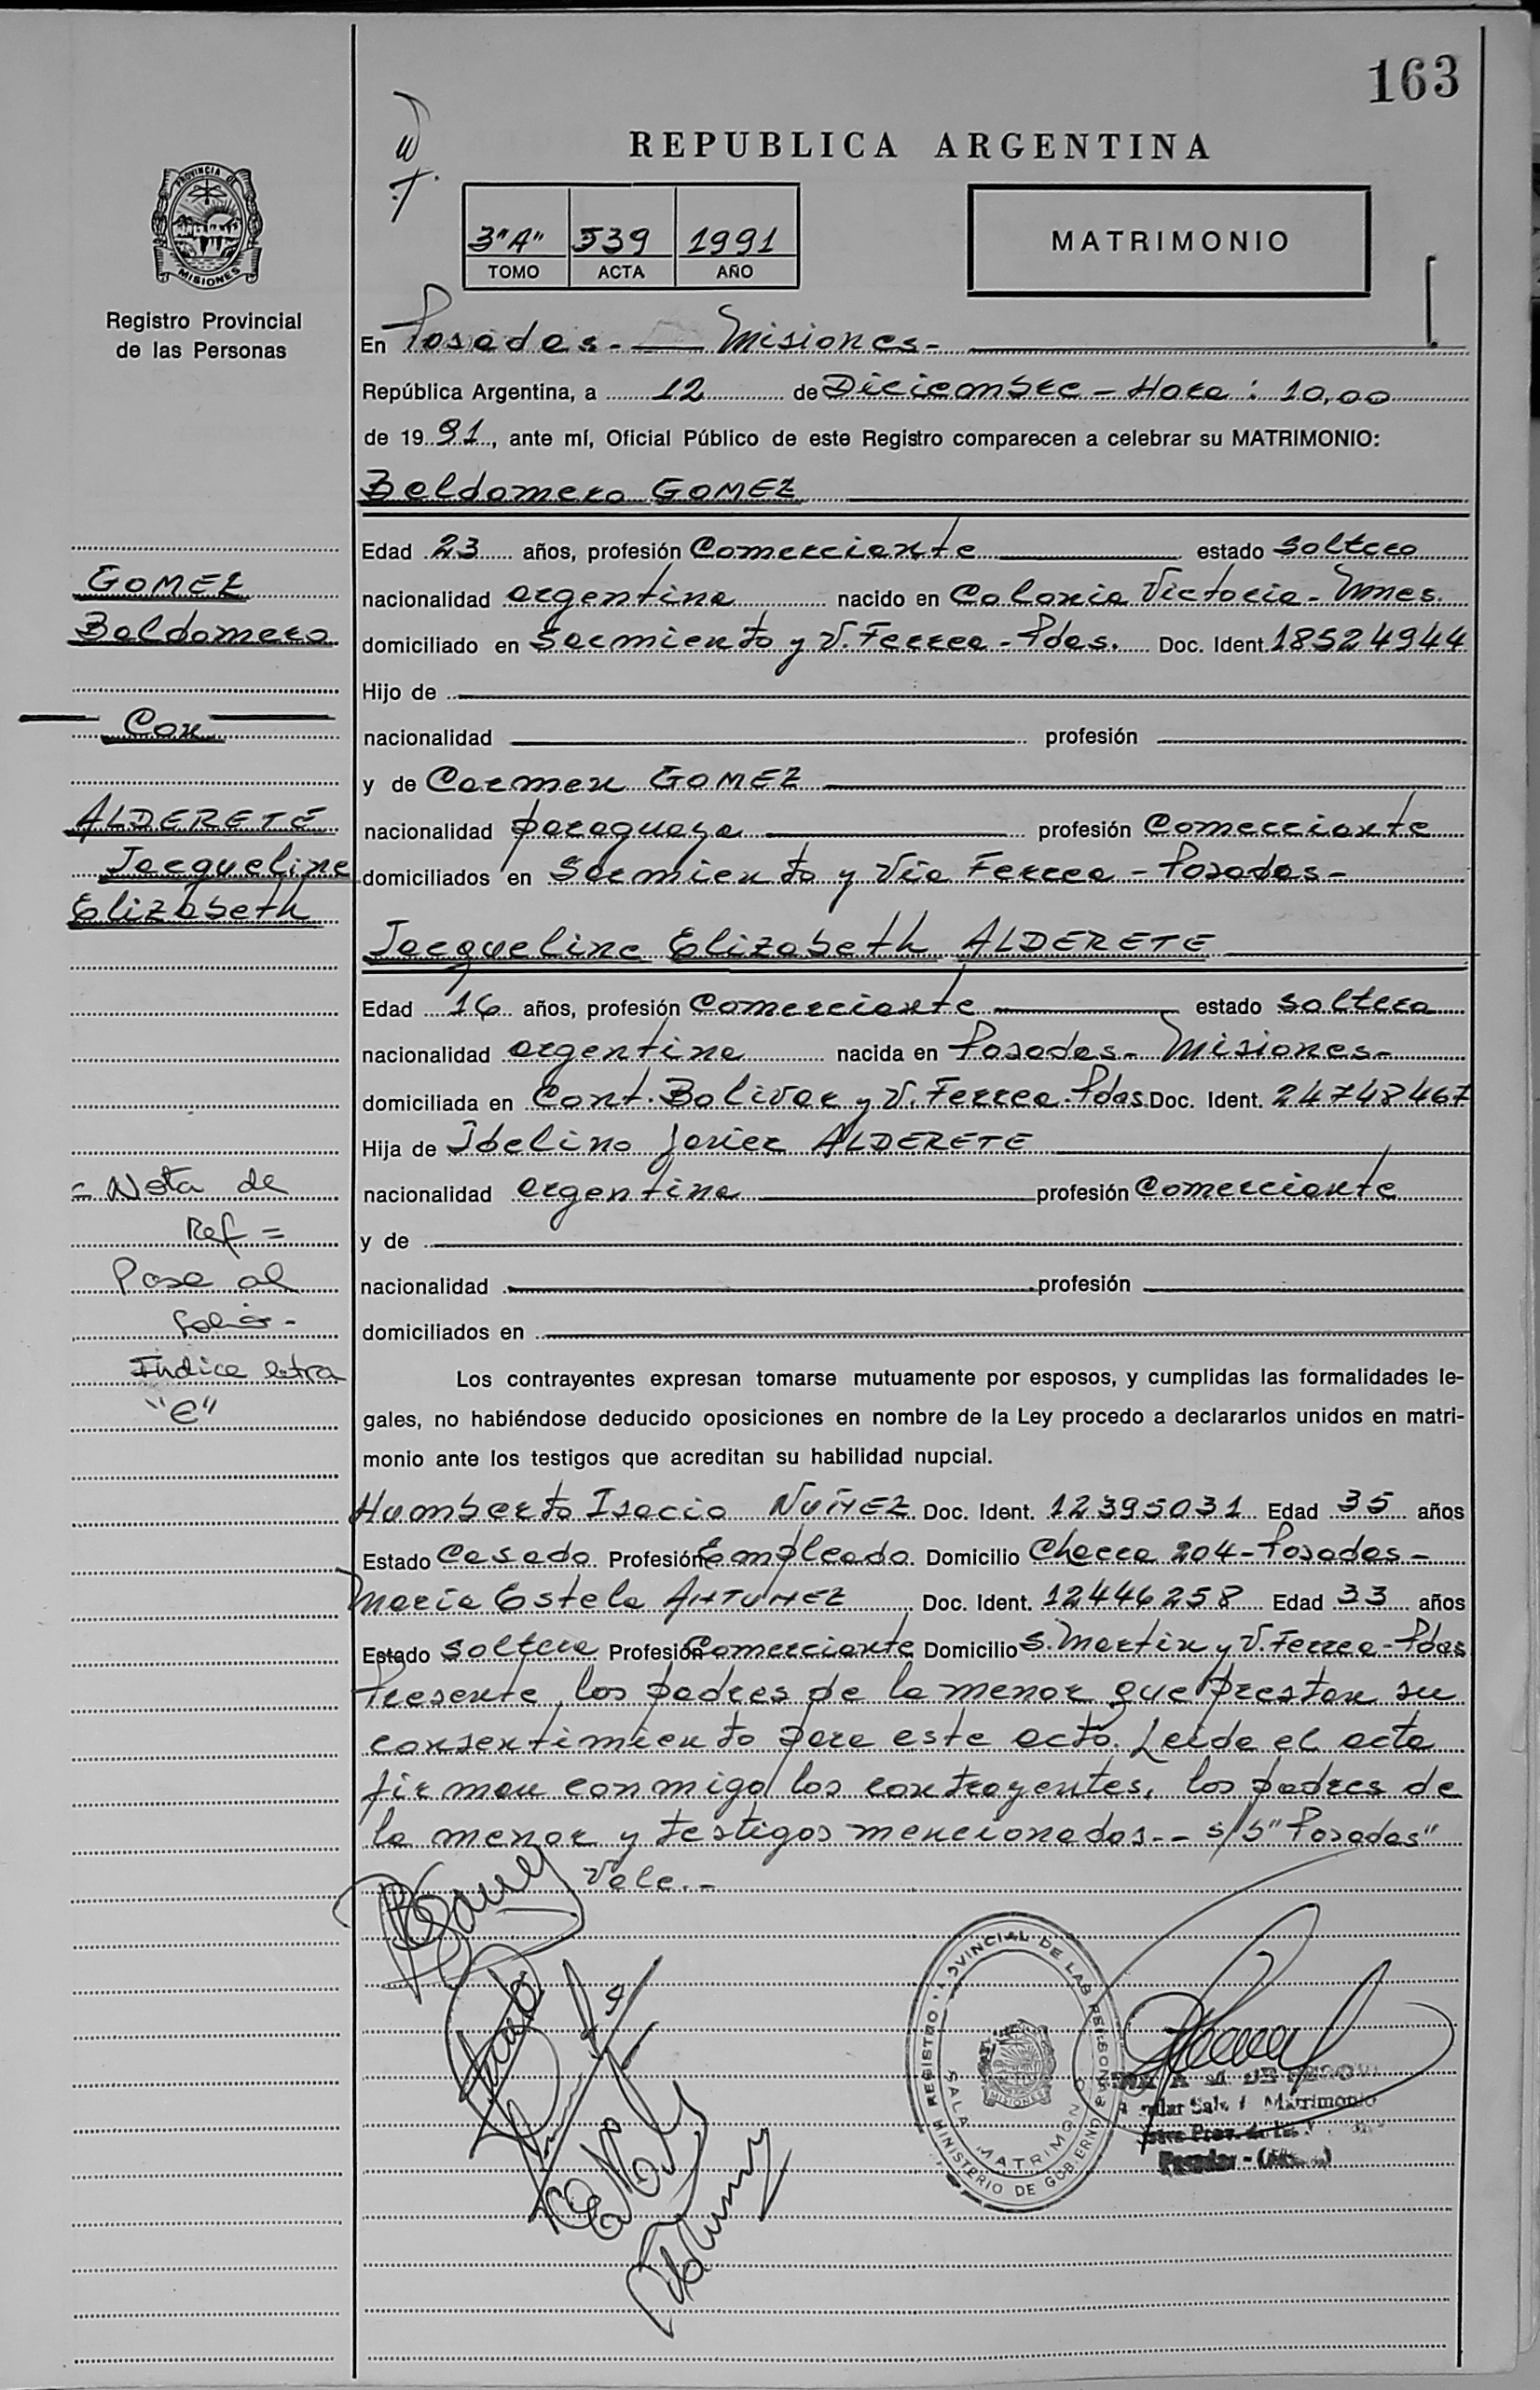 163
REPUBLICA ARGENTINA
PROVINCIA DE
MISIONES
Registro Provincial
de las Personas
3"A" 539 1991
TOMO ACTA AÑO
MATRIMONIO
En Posadas.- Misiones-
República Argentina, a 12 de Diciembre - Hora: 10,00
de 1991, ante mí, Oficial Público de este Registro comparecen a celebrar su MATRIMONIO:
Baldomero GOMEZ
Edad 23 años, profesión Comerciante estado soltero
nacionalidad argentina nacido en Colonia Victoria - Mnes.
domiciliado en Sarmiento y V. Ferrea - Pdas. Doc. Ident. 18524944
Hijo de
nacionalidad profesión
y de Carmen GOMEZ
nacionalidad paraguaya profesión Comerciante
domiciliados en Sarmiento y Vía Ferrea - Posadas-
Jacqueline Elizabeth ALDERETE
Edad 16 años, profesión Comerciante estado soltera
nacionalidad argentina nacida en Posadas- Misiones-
domiciliada en Cont. Bolivar y V. Ferrea - Pdas Doc. Ident. 24748467
Hija de Idelino Javier ALDERETE
nacionalidad argentina profesión Comerciante
y de
nacionalidad profesión
domiciliados en
Los contrayentes expresan tomarse mutuamente por esposos, y cumplidas las formalidades le-
gales, no habiéndose deducido oposiciones en nombre de la Ley procedo a declararlos unidos en matri-
monio ante los testigos que acreditan su habilidad nupcial.
Humberto Isacio NUÑEZ Doc. Ident. 12395031 Edad 35 años
Estado Casado Profesión Empleado Domicilio Checca 204 - Posadas-
María Estela ANTUNEZ Doc. Ident. 12446258 Edad 33 años
Estado soltera Profesión Comerciante Domicilio S. Martín y V. Ferrea - Pdas
Presente los padres de la menor que prestan su
consentimiento para este acto. Leída el acta
firman conmigo los contrayentes, los padres de
la menor y testigos mencionados.- - s/b "Posadas"
Vale.-
GOMEZ
Baldomero
Con
ALDERETE
Jacqueline
Elizabeth
- Nota de
Ref =
Pase al
folio -
Indice letra
"E"
REGISTRO PROVINCIAL DE LAS PERSONAS
MINISTERIO DE GOBIERNO
SALA MATRIMONIO
MISIONES
Matrimonio
Posadas -